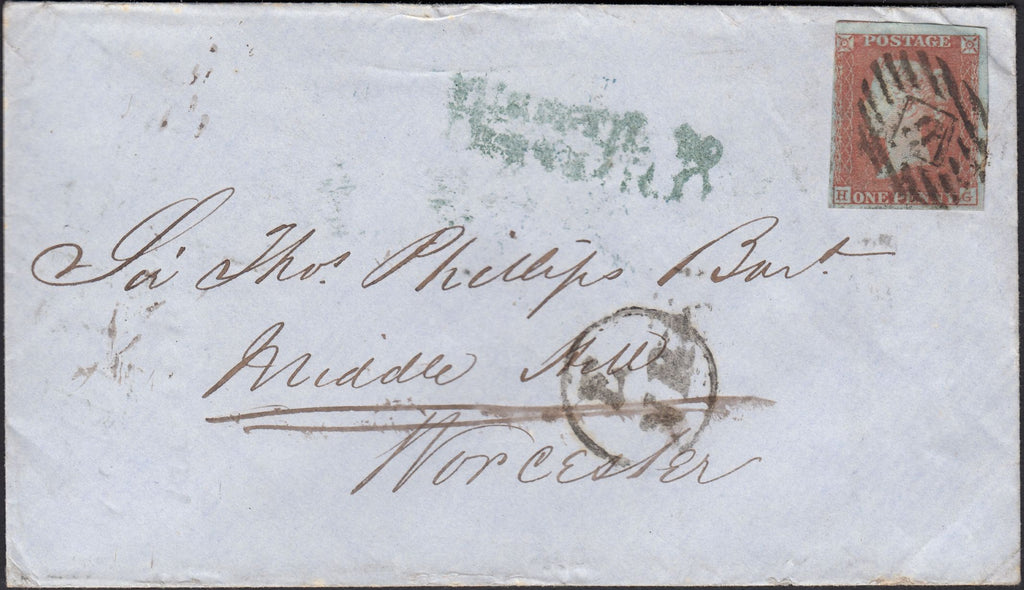 POSTAGE
H ONE PENNY G
Sir Thos. Phillips Bart.
Middle Hill
Worcester